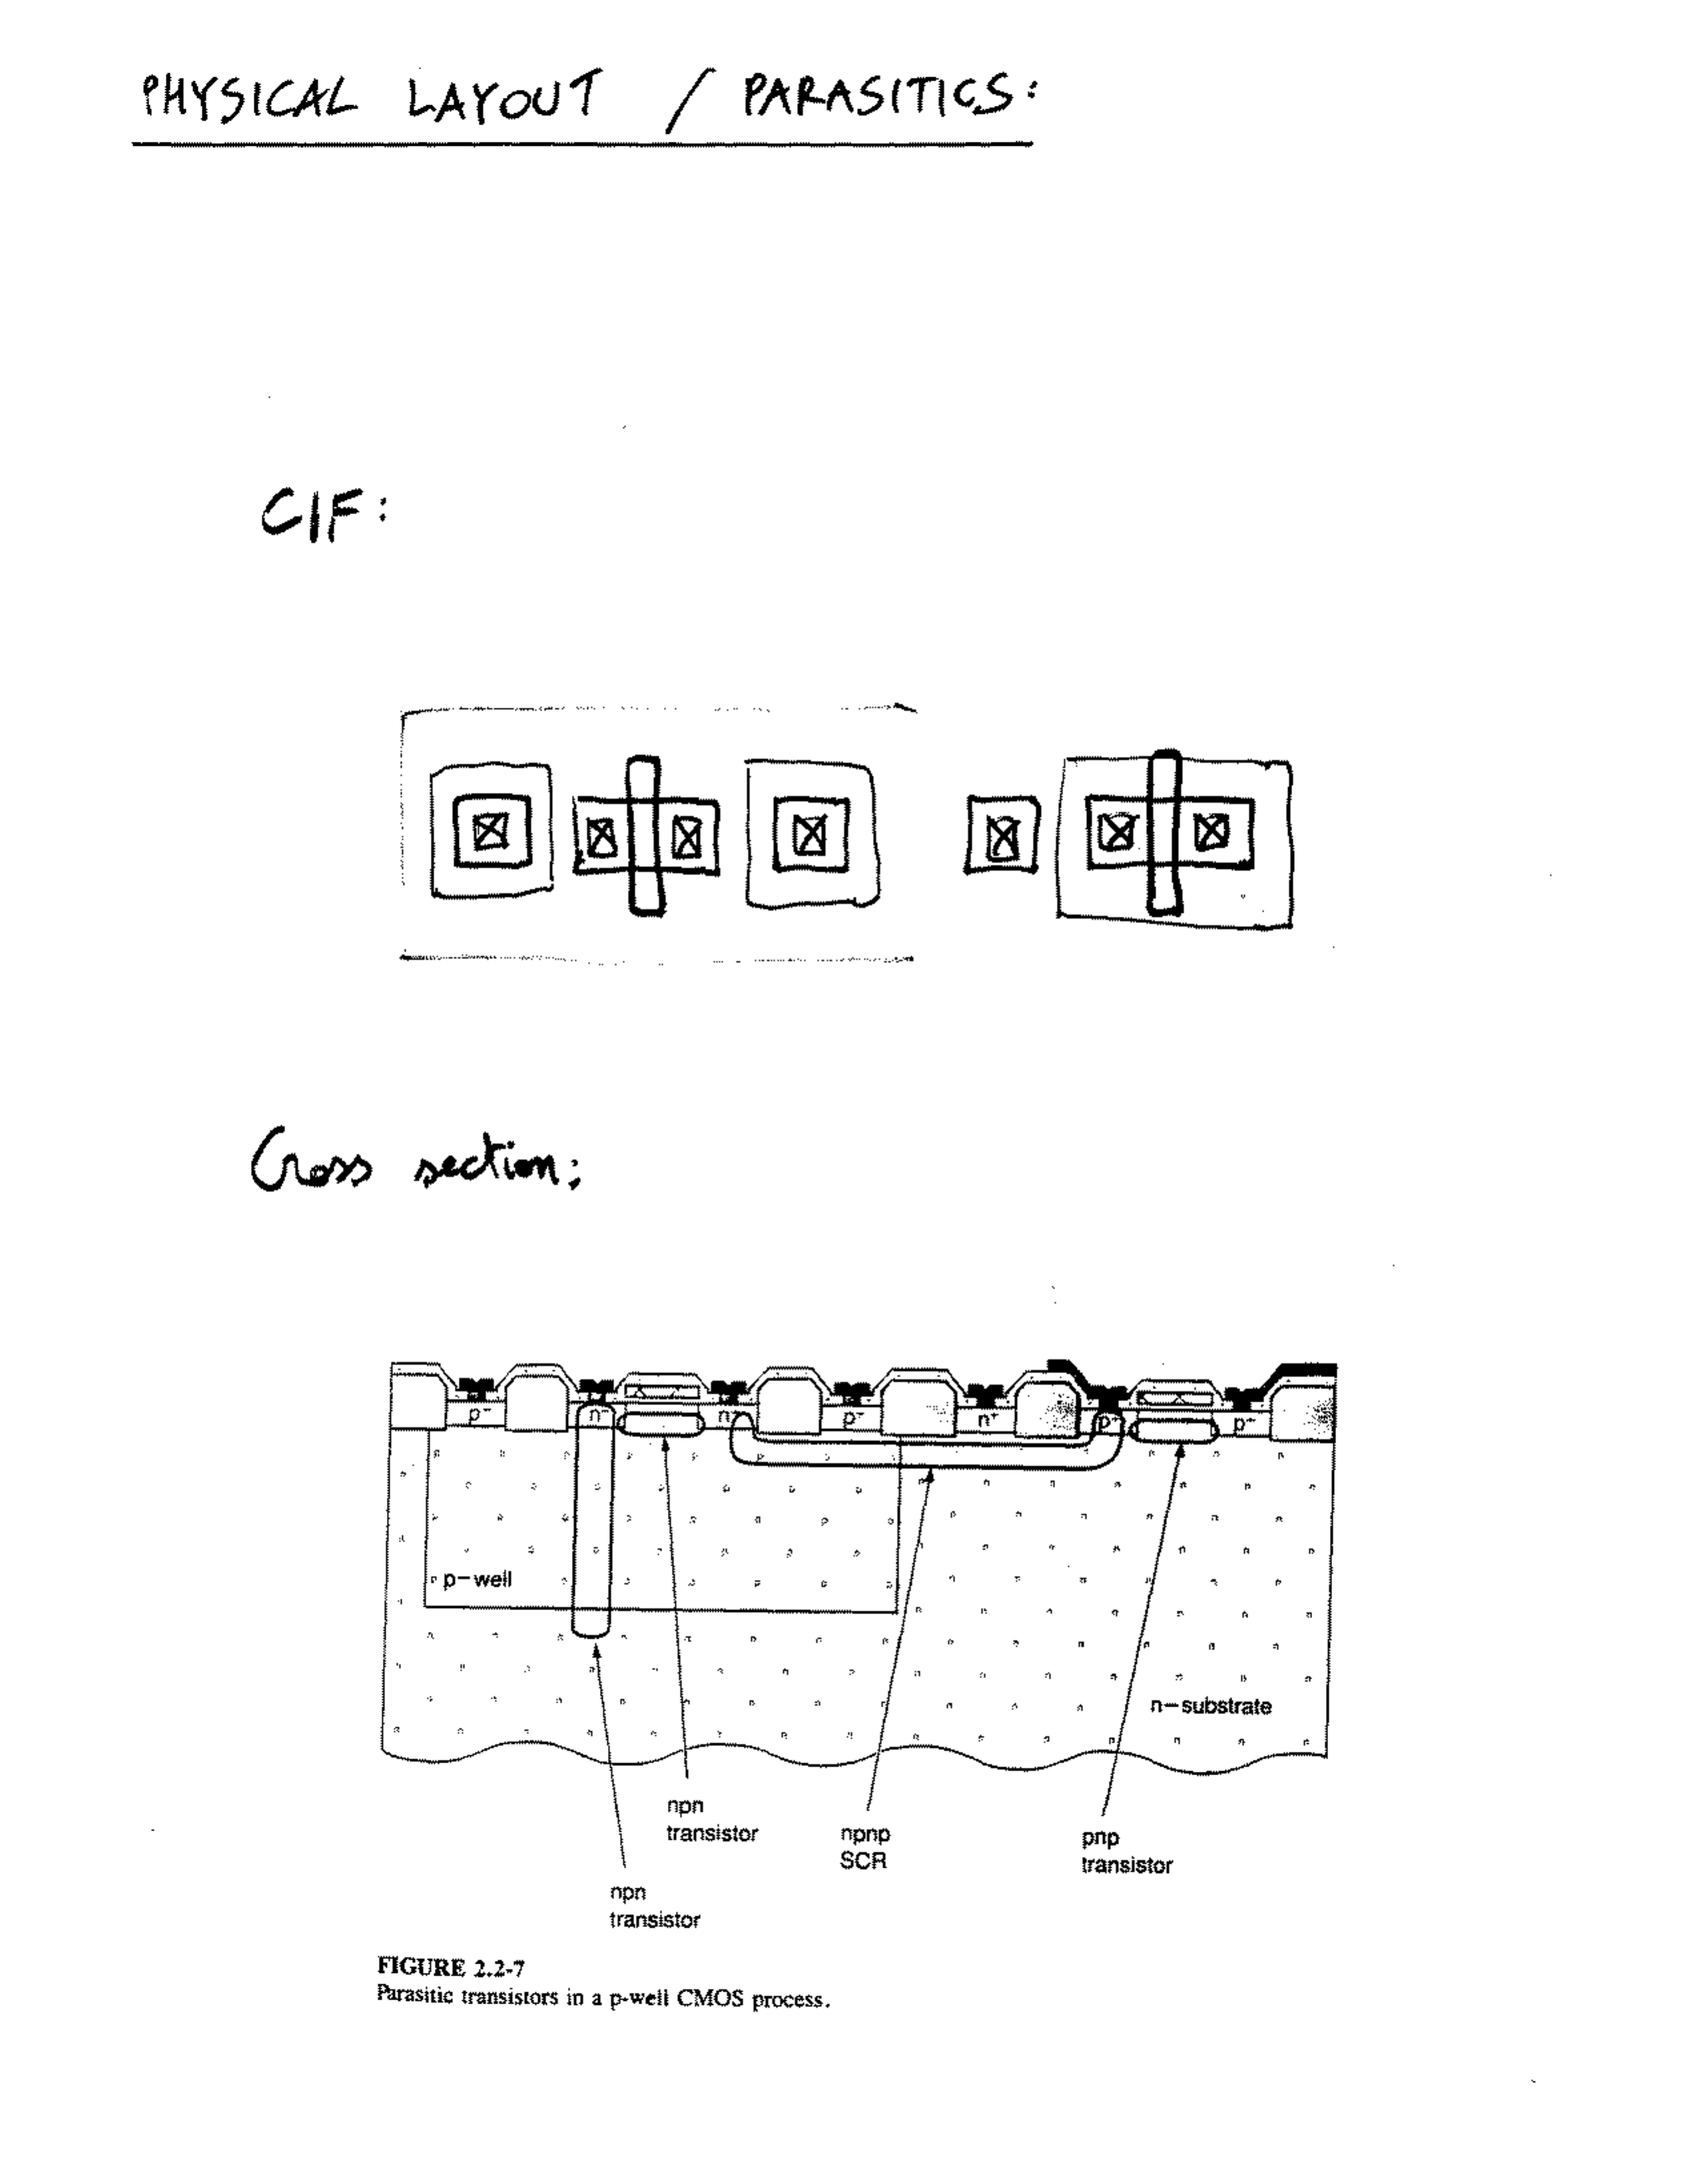 PHYSICAL LAYOUT / PARASITICS:
CIF:
Cross section:
p+ n+ n+ p+ n+ p+ p+
p-well
n-substrate
npn
transistor
npnp
SCR
pnp
transistor
npn
transistor
FIGURE 2.2-7
Parasitic transistors in a p-well CMOS process.